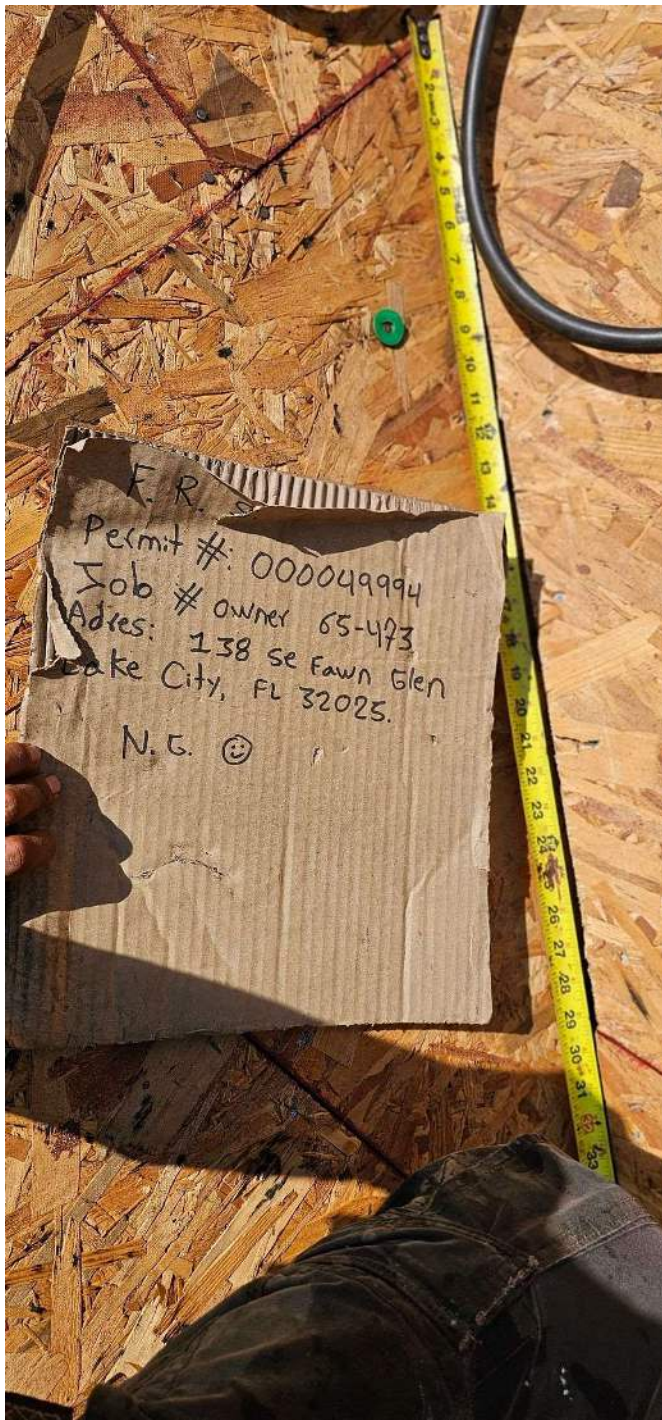 F. R. S
Permit #: 000049994
Job # owner 65-473
Adres: 138 Se Fawn Glen
Lake City, FL 32025.
N.G. ☺
2 3 4 5 6 7 8 9 10 11 12 13 14
17 18 19 20 21 22 23 24 25 26 27 28 29 30 31 33